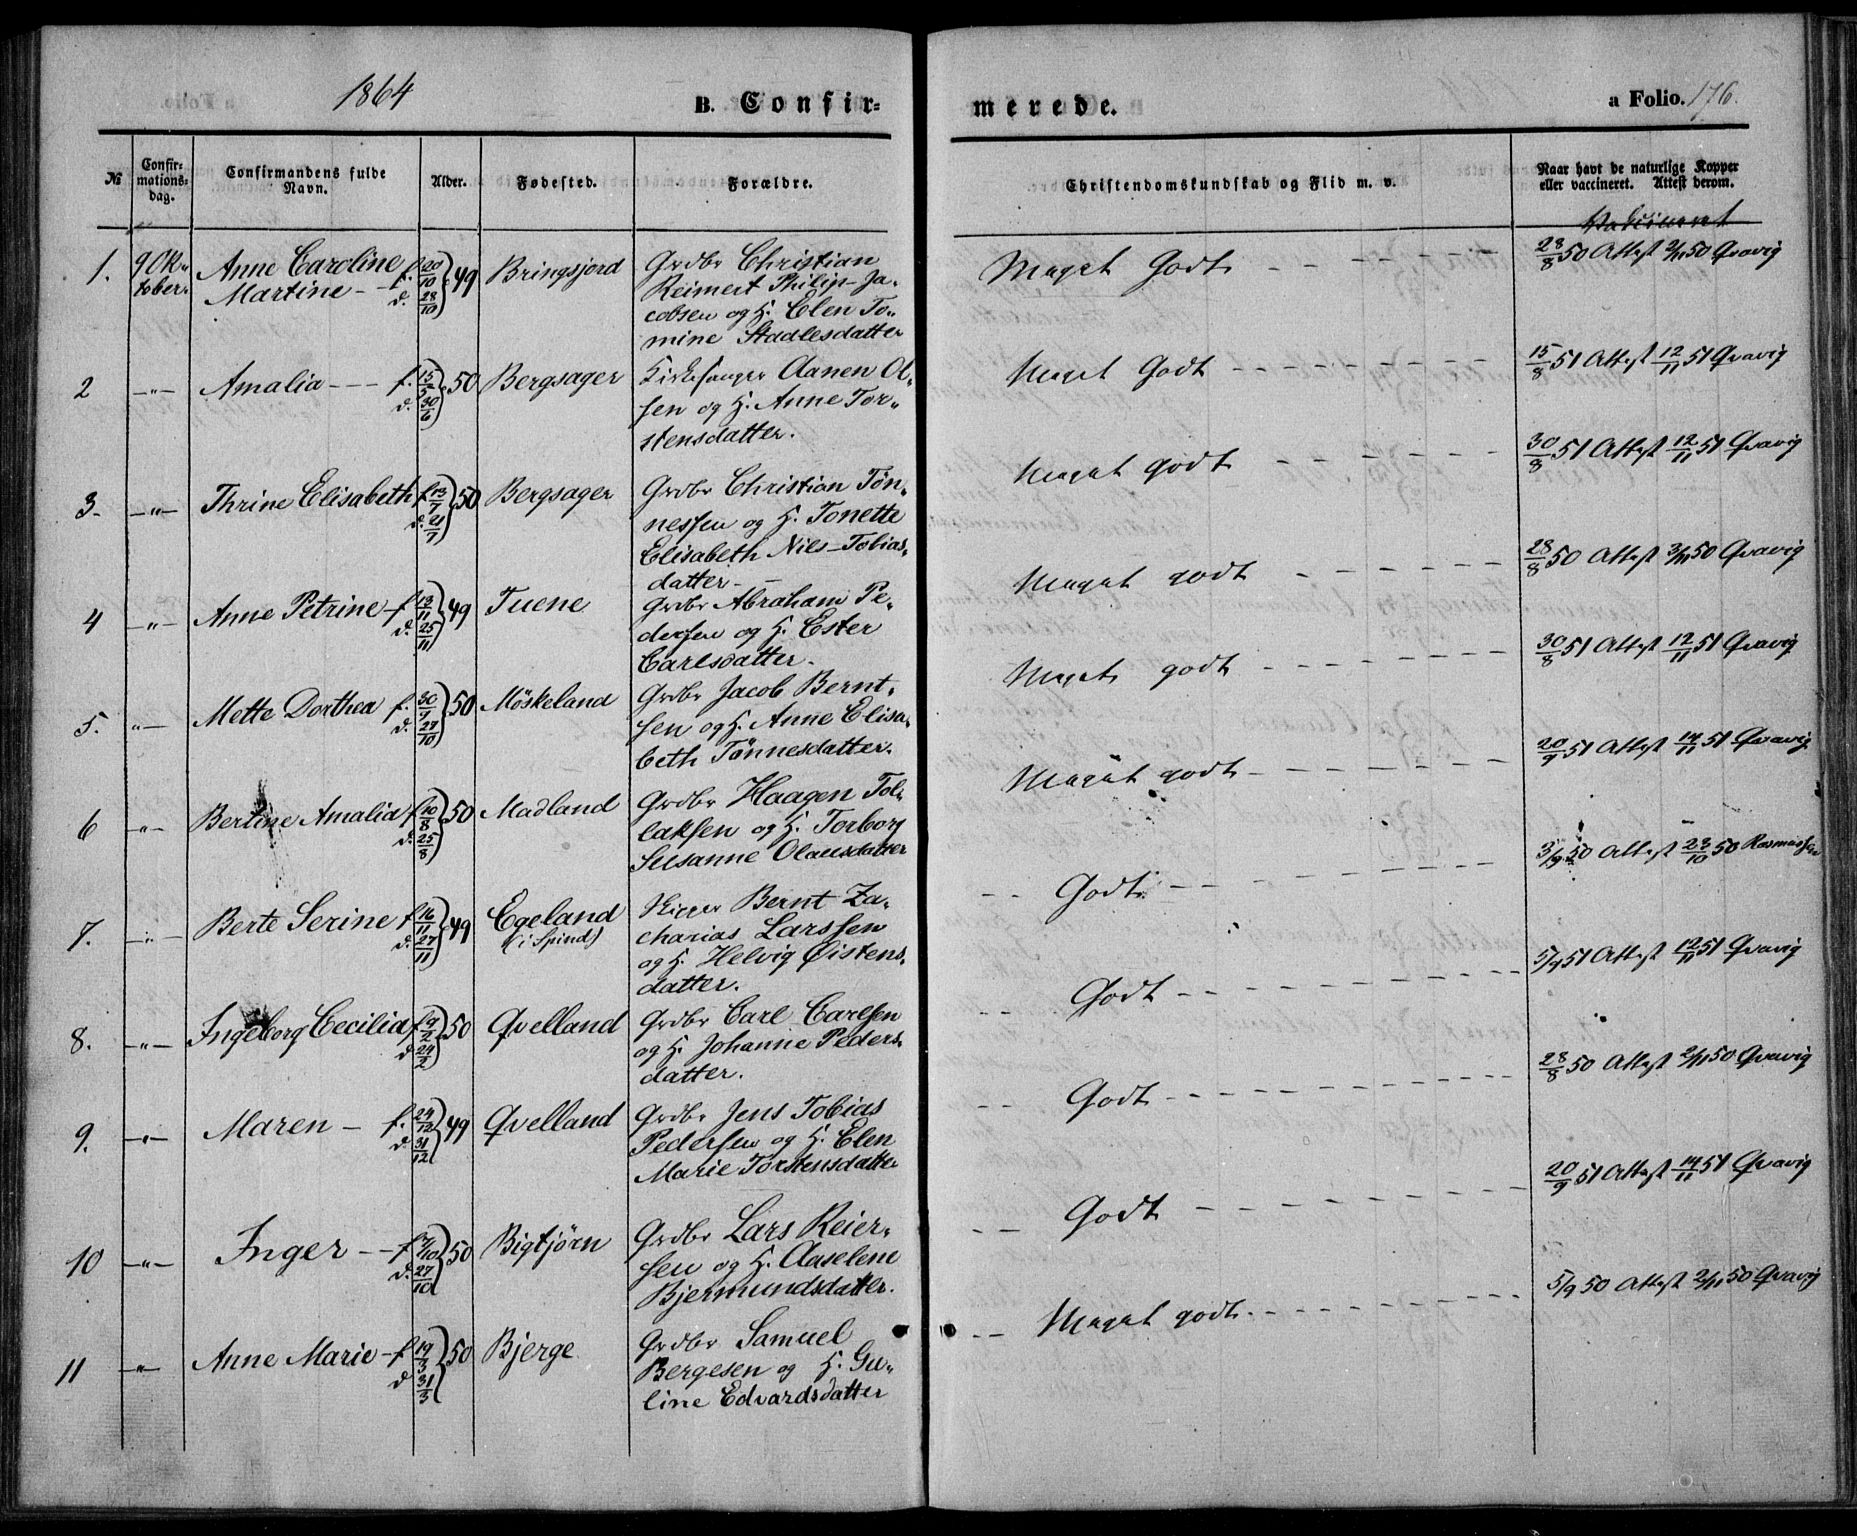 1864
B. Confir-
merede.
a Folio. 176.
№
Confir-
mations-
dag.
Confirmandens fulde
Navn.
Alder.
Fødested.
Forældre.
Christendomskundskab og Flid m. v.
Naar havt de naturlige Kopper
eller vaccineret. Attest derom.
1. 9 Ok- Anne Caroline f. 20/10 49 Bringsjord Grdbr Christian
tober Martine d. 28/10 Reimert Philip-Ja-
cobsen og H. Elen To-
mine Staalesdatter
Meget Godt 28/8 50 Attest 2/11 50 Qvavig
2 -"- Amalia f. 15/5 50 Bergsager Kirkesanger Aanen Ol-
d. 30/6 sen og H. Anne Tor-
stensdatter.
Meget Godt 15/8 51 Attest 12/11 51 Qvavig
3. -"- Thrine Elisabeth f. 13/7 50 Bergsager Grdbr Christian Tøn-
d. 21/7 nessen og H. Tonette
Elisabeth Nils-Tobias-
datter
Meget godt 30/8 51 Attest 12/11 51 Qvavig
4 -"- Anne Petrine f. 13/11 49 Tuene Grdbr Abraham Pe-
d. 25/11 dersen og H. Ester
Carlsdatter.
Meget godt 28/8 50 Attest 3/11 50 Qvavig
5. -"- Mette Dorthea f. 30/9 50 Møskeland Grdbr Jacob Bernt-
d. 27/10 sen og H. Anne Elisa-
beth Tønnesdatter.
Meget godt 30/8 51 Attest 12/11 51 Qvavig
6 -"- Bertine Amalia f. 10/8 50 Madland Grdbr Haagen Tol-
d. 25/8 laksen og H. Torborg
Susanne Olausdatter
Meget godt 20/9 51 Attest 14/11 51 Qvavig
7. -"- Berte Serine f. 16/11 49 Egeland Skipper Bernt Za-
d. 27/11 (i Spind) charias Larssen
og H. Helvig Øistens-
datter.
Godt 3/9 50 Attest 23/10 50 Rasmussen
8. -"- Ingeborg Cecilia f. 9/2 50 Qvelland Grdbr Carl Carlsen
d. 24/2 og H. Johanne Peders-
datter.
Godt 5/9 51 Attest 12/11 51 Qvavig
9. -"- Maren f. 24/12 49 Qvelland Grdbr Jens Tobias
d. 31/12 Pedersen og H. Elen
Marie Torstensdatter
Godt 28/8 50 Attest 2/11 50 Qvavig
10 -"- Inger f. 7/10 50 Bigtjørn Grdbr Lars Reier-
d. 27/10 sen og H. Aaselene
Bjermundsdatter.
Godt 20/9 51 Attest 14/11 51 Qvavig
11 -"- Anne Marie f. 19/3 50 Bjerge Grdbr Samuel
d. 31/3 Bergesen og H. Gu-
line Edvardsdatter
Meget godt 5/9 50 Attest 2/11 50 Qvavig